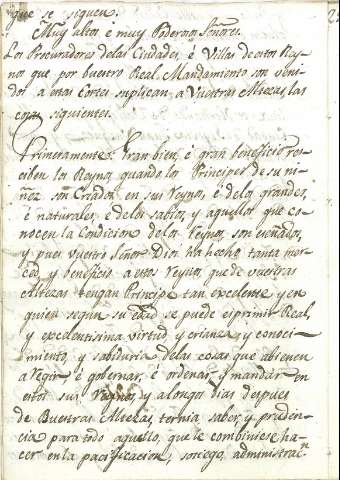 que se siguen.
Muy altos é muy Poderosos Señores.
Los Procuradores delas Ciudades, é Villas de estos Rey-
nos que por buestro Real Mandamiento son veni-
dos a estas Cortes suplican, a Vuestras Altezas, las
cosas siguientes.
Primeramente: Gran bien, é gran beneficio re-
ciben los Reynos quando los Principes de su ni-
ñez son Criados en sus Reynos, é delos grandes,
é naturales, é delos sabios, y aquellos que co-
nocen la Condicion de los Reynos, son enseñados,
y pues nuestro Señor Dios ha hecho tanta mer-
ced, y beneficio a estos Reynos, que de vuestras
Altezas tengan Principe tan excelente, y en
quien segun su edad se puede esprimir Real,
y excelentisima virtud, y crianza, y conoci-
miento, y sabiduria delas cosas que abienen
a regir, é gobernar, é ordenar, y mandar en
estos sus Reynos, y alongos dias despues
de Buestras Altezas, ternia saber, y pruden-
cia para todo aquello, que le combiniese ha-
cer en la pacificacion, sosiego, administraⁿ